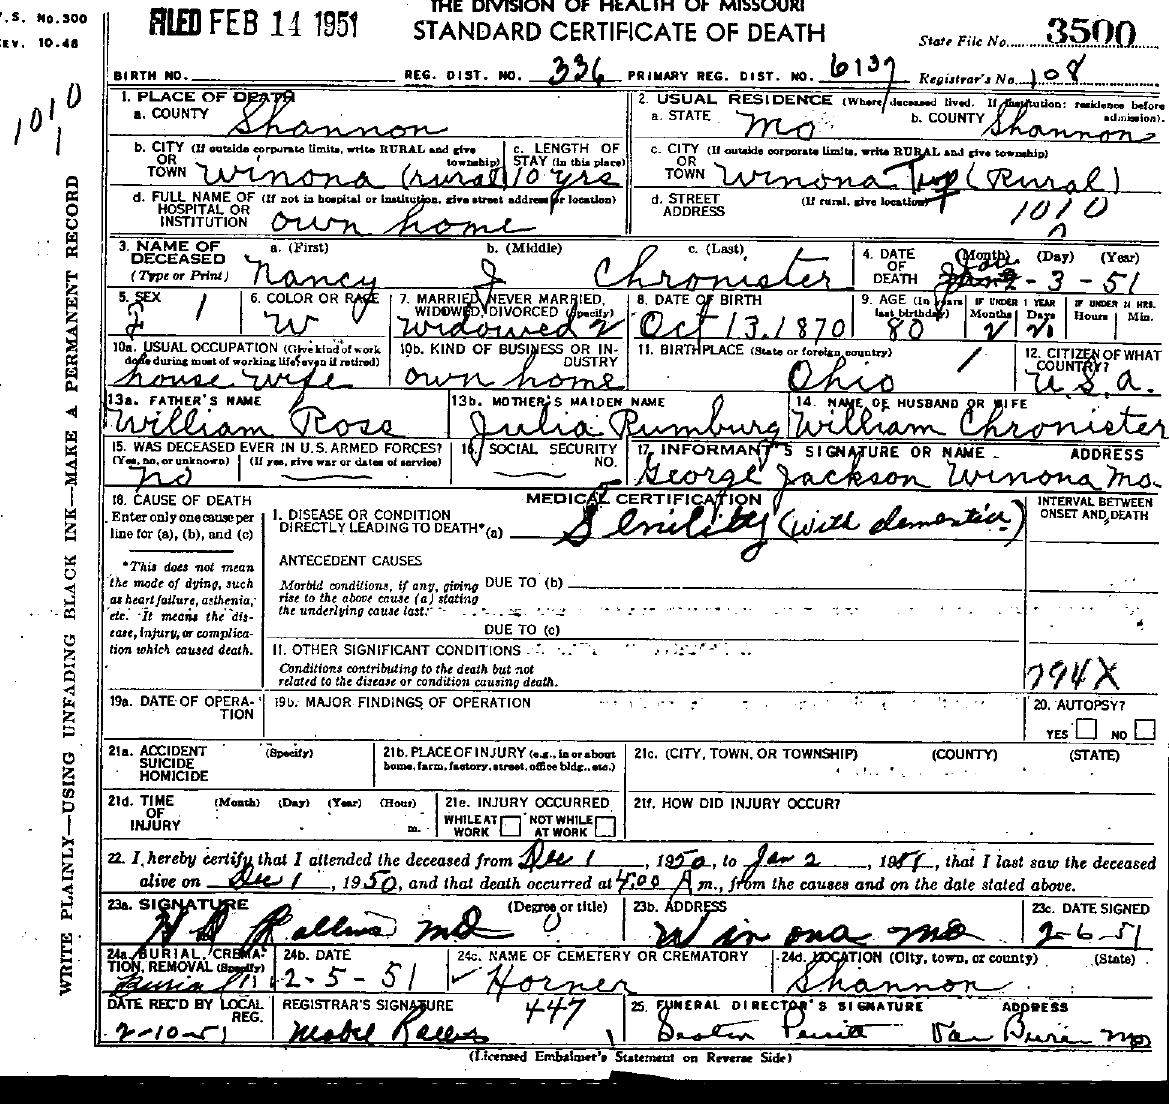 THE DIVISION OF HEALTH OF MISSOURI
V.S. No.300
FILED FEB 14 1951
STANDARD CERTIFICATE OF DEATH
State File No. 3500
REV. 10-48
BIRTH NO. REG. DIST. NO. 336 PRIMARY REG. DIST. NO. 6137 Registrar's No. 108
1010
1
1. PLACE OF DEATH
a. COUNTY Shannon
2. USUAL RESIDENCE (Where deceased lived. If institution: residence before admission).
a. STATE Mo b. COUNTY Shannon
b. CITY (If outside corporate limits, write RURAL and give township) OR TOWN Winona (rural)
c. LENGTH OF STAY (in this place) 10 yrs
c. CITY (If outside corporate limits, write RURAL and give township) OR TOWN Winona Twp (Rural)
d. FULL NAME OF (If not in hospital or institution, give street address or location) HOSPITAL OR INSTITUTION own home
d. STREET ADDRESS (If rural, give location) 1010
3. NAME OF DECEASED (Type or Print)
a. (First) Nancy b. (Middle) J c. (Last) Chronister
4. DATE OF DEATH (Month) (Day) (Year) - 3 - 51
5. SEX F 1
6. COLOR OR RACE W
7. MARRIED, NEVER MARRIED, WIDOWED, DIVORCED (Specify) Widowed 2
8. DATE OF BIRTH Oct 13. 1870
9. AGE (In years last birthday) 80 IF UNDER 1 YEAR Months Days IF UNDER 24 HRS. Hours Min.
10a. USUAL OCCUPATION (Give kind of work done during most of working life, even if retired) house wife
10b. KIND OF BUSINESS OR INDUSTRY own home
11. BIRTHPLACE (State or foreign country) Ohio
12. CITIZEN OF WHAT COUNTRY? U.S.A.
13a. FATHER'S NAME William Rose
13b. MOTHER'S MAIDEN NAME Julia Rumburg
14. NAME OF HUSBAND OR WIFE William Chronister
15. WAS DECEASED EVER IN U.S. ARMED FORCES? (Yes, no, or unknown) (If yes, give war or dates of service) no
16. SOCIAL SECURITY NO.
17. INFORMANT'S SIGNATURE OR NAME ADDRESS George Jackson Winona Mo.
18. CAUSE OF DEATH
Enter only one cause per line for (a), (b), and (c)
*This does not mean the mode of dying, such as heart failure, asthenia, etc. It means the disease, injury, or complication which caused death.
MEDICAL CERTIFICATION
INTERVAL BETWEEN ONSET AND DEATH
I. DISEASE OR CONDITION DIRECTLY LEADING TO DEATH* (a) Senility (with dementia)
ANTECEDENT CAUSES
Morbid conditions, if any, giving rise to the above cause (a) stating the underlying cause last.
DUE TO (b)
DUE TO (c)
II. OTHER SIGNIFICANT CONDITIONS
Conditions contributing to the death but not related to the disease or condition causing death.
794X
19a. DATE OF OPERATION
19b. MAJOR FINDINGS OF OPERATION
20. AUTOPSY? YES NO
21a. ACCIDENT SUICIDE HOMICIDE (Specify)
21b. PLACE OF INJURY (e.g., in or about home, farm, factory, street, office bldg., etc.)
21c. (CITY, TOWN, OR TOWNSHIP) (COUNTY) (STATE)
21d. TIME OF INJURY (Month) (Day) (Year) (Hour) m.
21e. INJURY OCCURRED WHILE AT WORK NOT WHILE AT WORK
21f. HOW DID INJURY OCCUR?
22. I hereby certify that I attended the deceased from Dec 1, 1950, to Jan 2, 1951, that I last saw the deceased
alive on Dec 1, 1950, and that death occurred at 4:00 A m., from the causes and on the date stated above.
23a. SIGNATURE (Degree or title) H D Rollins MD
23b. ADDRESS Winona Mo
23c. DATE SIGNED 2-6-51
24a. BURIAL, CREMATION, REMOVAL (Specify) Burial
24b. DATE 2-5-51
24c. NAME OF CEMETERY OR CREMATORY Horner
24d. LOCATION (City, town, or county) (State) Shannon
DATE REC'D BY LOCAL REG. 2-10-51
REGISTRAR'S SIGNATURE Mabel 447
25. FUNERAL DIRECTOR'S SIGNATURE ADDRESS Van Buren Mo
(Licensed Embalmer's Statement on Reverse Side)
WRITE PLAINLY—USING UNFADING BLACK INK—MAKE A PERMANENT RECORD